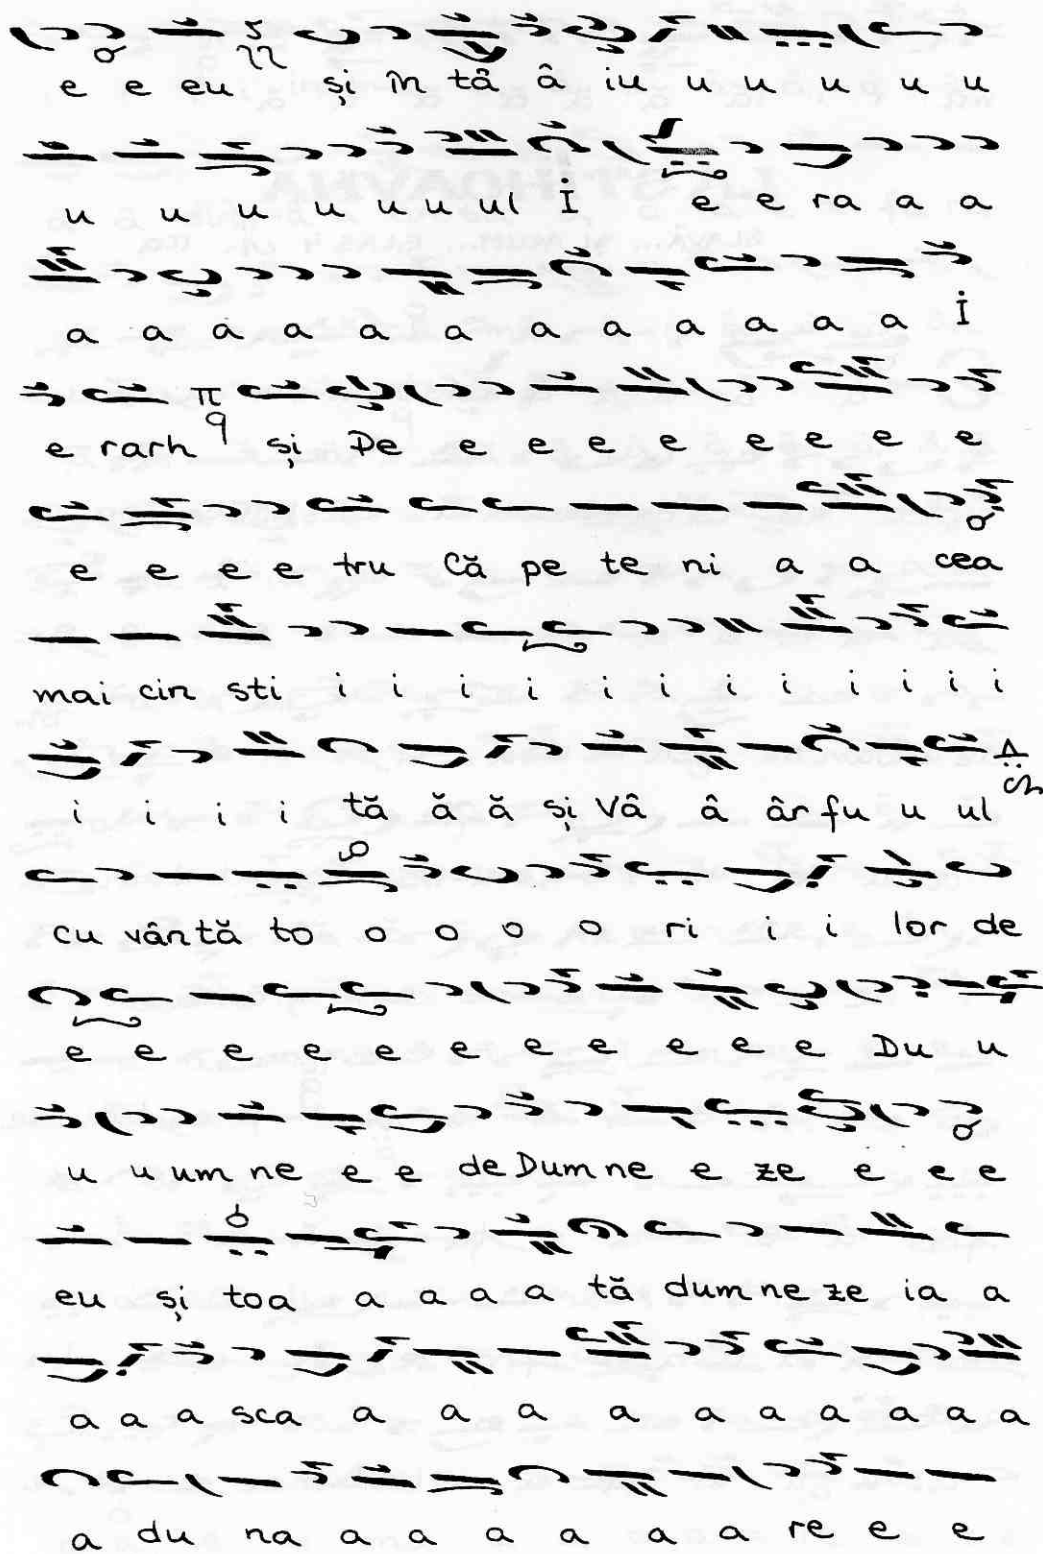 e e eu și în tâ â iu u u u u u
u u u u u u ul İ e e ra a a
a a a a a a a a a a a a İ
e rarh și Pe e e e e e e e e
e e e e tru Că pe te ni a a cea
mai cin sti i i i i i i i i i i i
i i i i tă ă ă și Vâ â âr fu u ul
cu vântă to o o o o ri i i lor de
e e e e e e e e e e e Du u
u u um ne e e de Dum ne e ze e e e
eu și toa a a a a tă dum ne ze ia a
a a a sca a a a a a a a a a a
a du na a a a a a a re e e